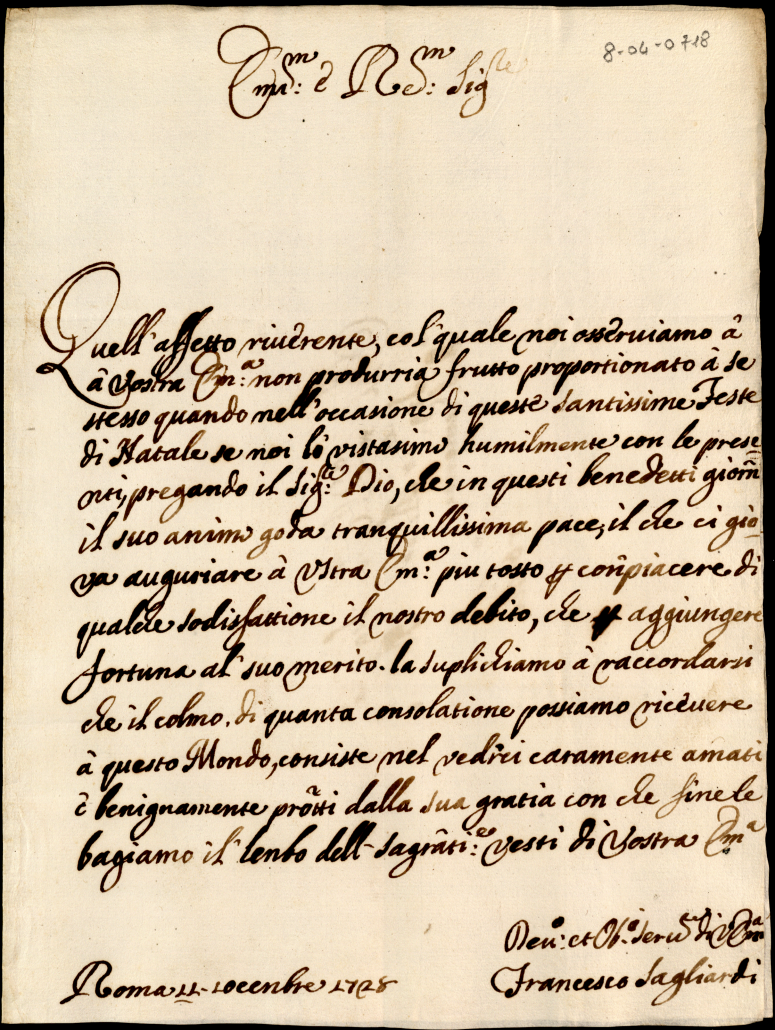 8-04-0718
Em.mo e Re.mo Sig.re
Quell'affetto riverente, col'quale noi osserviamo â
â Vostra Em.a non produrria frutto proportionato â se
stesso quando nell'occasione di queste santissime Feste
di Natale se noi lô vistasimo humilmente con le prese=
nti, pregando il Sig.re Dio, che in questi benedetti giorn
il suo animo goda tranquillissima pace, il che ci gio=
va auguriare â Vstra Em.a piu tosto p conpiacere di
qualche sodisfattione il nostro debito, che p aggiungere
fortuna al' suo merito. la suplichiamo â raccordarsi
che il colmo. di quanta consolatione possiamo ricevere
â questo Mondo, consiste nel vedrci caramente amati
ê benignamente protti dalla sua gratia con che fine le
bagiamo il' lenbo dell' sagrati: vesti di Vostra Em.a
Dev.o: et Ob.o Serv.re di V Em.a
Francesco Sagliardi
Roma 11- 10cenbre 1728